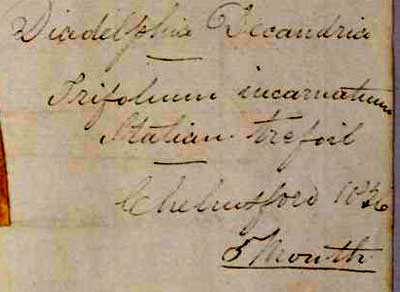 Diadelphia Decandria
Trifolium incarnatum
Italian trefoil
Chelmsford 1836
5 Month